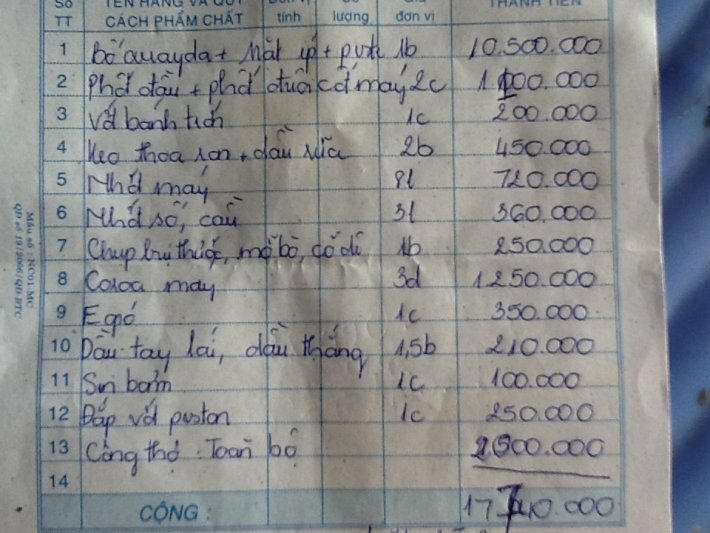 Số TÊN HÀNG VÀ QUY THÀNH TIỀN
TT CÁCH PHẨM CHẤT tính lượng đơn vị
1 Bố quayda + Mặt ýp + puste 1b 10.500.000
2 Phớt đầu + phớt đuôi cổ máy 2c 1100.000
3 Vỏ bánh tích 1c 200.000
4 Keo thoa ron + dầu rữa 2b 450.000
5 Nhớt máy 8l 720.000
6 Nhớt số, cầu 3l 360.000
7 Chụp trụ thước, mỡ bò, cổ dê 1b 250.000
8 Coroa máy 3d 1250.000
9 E gió 1c 350.000
10 Dầu tay lái, dầu thắng 1,5b 210.000
11 Sin bơm 1c 100.000
12 Đắp vỏ puston 1c 250.000
13 Công thợ Toàn bộ 2000.000
14
CỘNG : 17.740.000
Mẫu số : NC01-MC
QĐ số 19/2006/QĐ-BTC